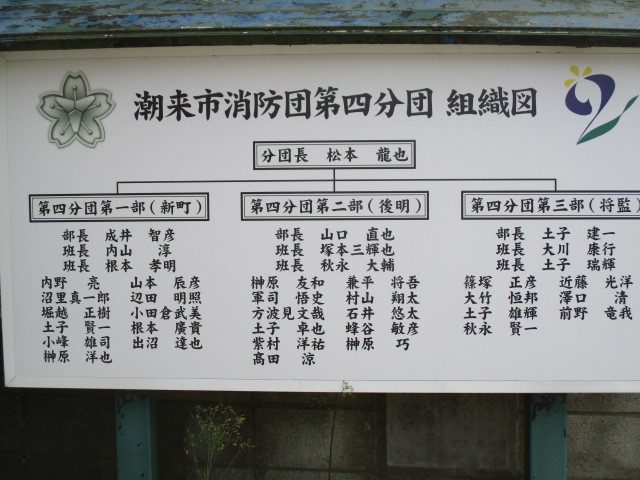 潮来市消防団第四分団 組織図
分団長 松本 龍也
第四分団第一部(新町)
部長 成井 智彦
班長 内山 淳
班長 根本 孝明
内野 亮 山本 辰彦
沼里真一郎 辺田 明照
堀越 正樹 小田倉武美
土子 賢一 根本 廣貴
小峰 雄司 出沼 達也
榊原 洋也
第四分団第二部(後明)
部長 山口 直也
班長 塚本三輝也
班長 秋永 大輔
榊原 友和 兼平 将吾
軍司 悟史 村山 翔太
方波見文哉 石井 悠太
土子 卓也 蜂谷 敏彦
紫村 洋祐 榊原 巧
髙田 涼
第四分団第三部(将監)
部長 土子 建一
班長 大川 康行
班長 土子 瑞輝
篠塚 正彦 近藤 光洋
大竹 恒邦 澤口 清
土子 雄輝 前野 竜我
秋永 賢一